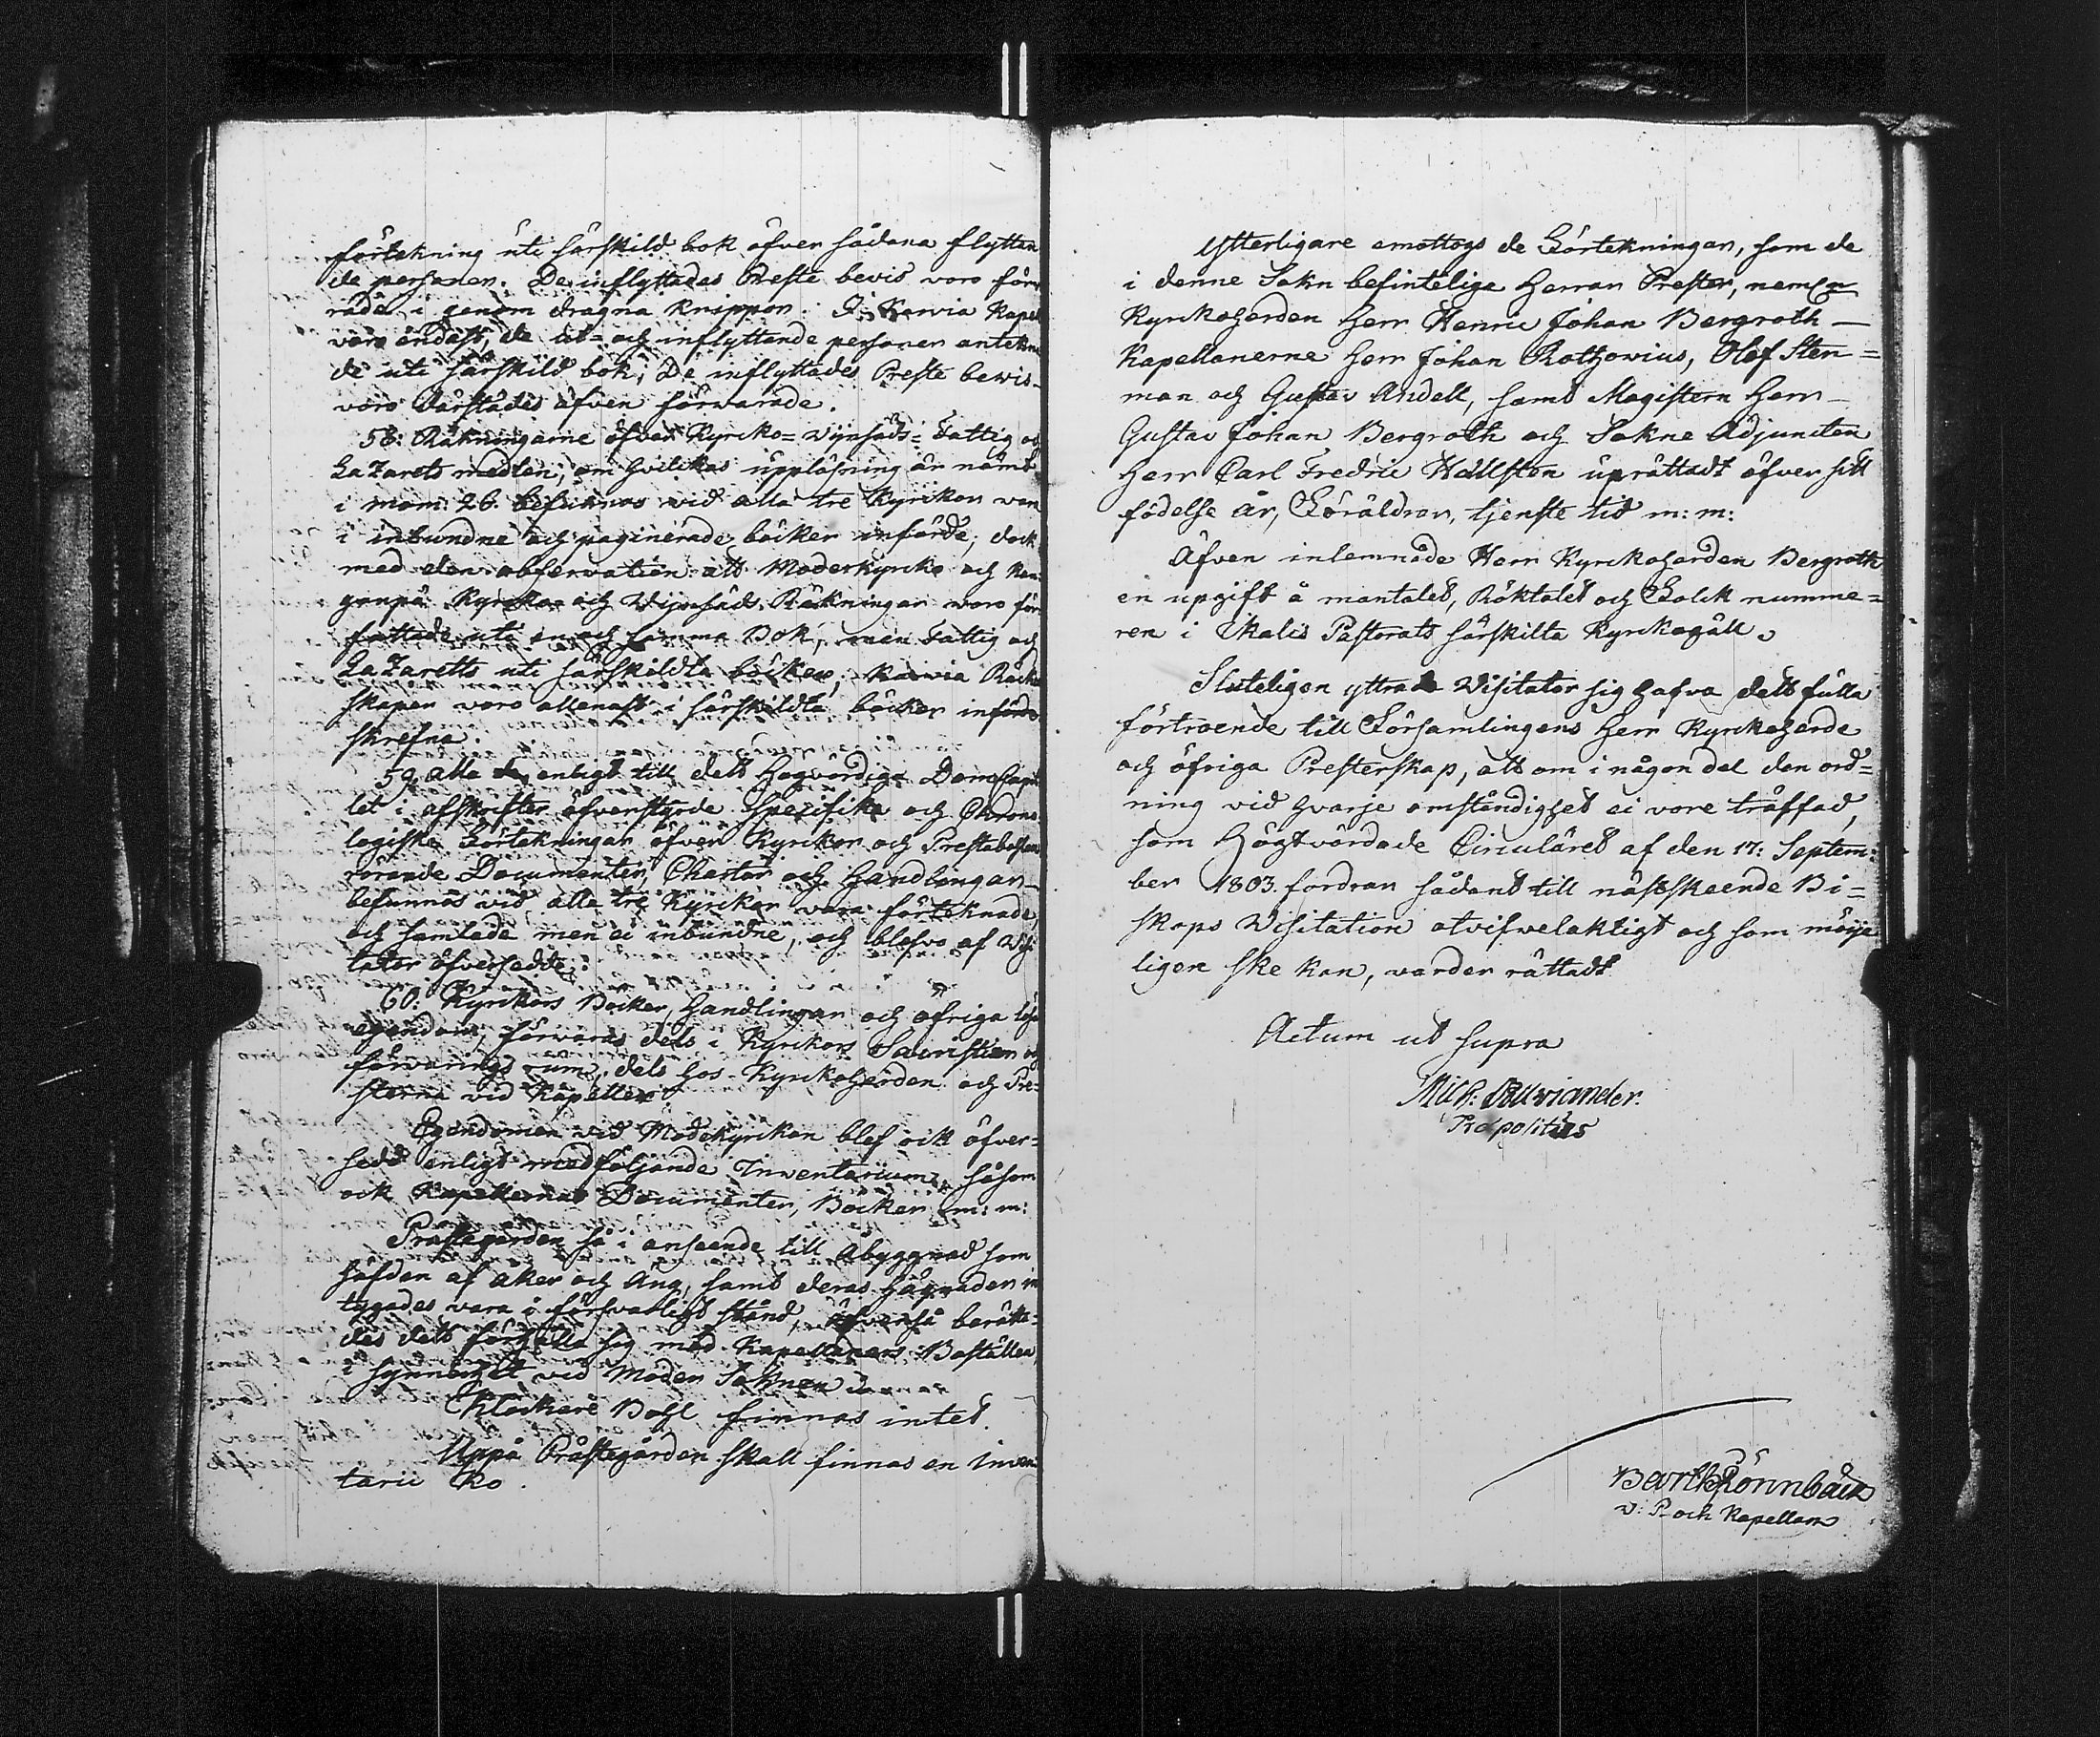 förtekning uti särskild bok öfver sådana flyttan
de personer. De inflyttades Preste bevis voro förva
rade i genom dragna knippor. I Karvia Kapell
voro endast, de ut- och inflyttande personer antekna
de uti särskild bok; De inflyttades Preste bewis
voro därstädes äfven förwarade.
58: Räkningarne öfver Kyrcko= Vijnsäds= Fattig och
LaZarets medlen, om hvilckas uppläsning är nämt
i mom: 26. befunnos vid alla tre Kyrckor vara
i inbundne och paginerade böcker införde; dock
med den observation att Moderkyrcko och Kan=
ganpä Kyrcko och Vijnsäds Räkningar woro för
fattade uti en och samma Bok, men Fattig och
LaZaretts uti särskildta böcker, Karvia Räcken
skaper voro allenast i särskildta böcker införde
skrefne.
59. alla enligt till dett Högvördiga DomCapit
let i afskrifter öfverstyrde Specifika och Chrono
logiske Förtekningar öfver Kyrckor och Prestabolen
rörande Documenter, Chartor och Handlingar
befunnos vid alla tre Kyrckor vara förteknade
och samlade men ei inbundne, och blefvo af Visi
tator öfversedde.
60: Kyrckors Böcker, Handlingar och öfriga lösa
egendom, förvaras dels i Kyrckors Sacristior och
förvarings rum, dels hos Kyrckoherden och Pre=
sterna vid Kapeller.
Egendomen vid Modekyrckan blef ock öfver=
sedd enligt medföljande Inventarium, såsom
ock Kapellernas Documenter, Böcker m: m:
Prästegården så i anseende till Åbyggnad som
häfden af åker och Äng, samt deras hägnader in
tygades vara i försvarligt stånd, äfvenså berätta=
des dett förhålla sig med Kapellaners Boställen
i synnerhet vid Moder Soknen
Klockare Bohl finnas intet.
Uppå Prästegården skall finnas en Inven
tarii Ko.
Ytterligare emottogs de Förtekningar, som de
i denne Sokn befintelige Herrar Prester, nemln
Kyrckoherden Herr Henric Johan Bergroth —
Kapellanerne Herr Johan Rothovius, Olof Sten=
man och Gustav Andell, samt Magistern Herr
Gustav Johan Bergroth och Sokne Adjuncten
Herr Carl Fredric Hällsten uprättadt öfver sitt
födelse år, Föräldrar, tjenste tid m: m:
Äfven inlemnade Herr Kyrckoherden Bergroth
en upgift å mantalet, Röktalet och Folck numme=
ren i Ikalis Pastorats särskilta Kyrckogäll.
Sluteligen yttrade Visitator sig hafva dett fulla
förtroende till Församlingens Herr Kyrckoherde
och öfriga Presterskap, att om i någon del den ord=
ning vid hvarje omständighet ei vore träffad,
som Högtvördade Circuläret af den 17: Septem=
ber 1803. fordrar sådant till nästskeende Bi=
skops Visitation otvifvelaktigt och som möije
ligen ske kan, varder rättadt
Actum ut supra
Mich: Polviander.
Præpositus
Barth Rönnbäck
v: P. och Kapellan